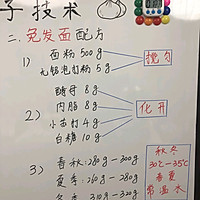 子技术
二. 免发面配方
1) 面粉 500g
无铝泡打粉 5g
搅匀
2) 酵母 8g
内脂 8g
小苏打 4g
白糖 10g
化开
3) 春秋: 280g — 300g
夏季: 260g — 280g
冬季: 310g — 320g
秋冬
30℃ — 35℃
春夏
常温水